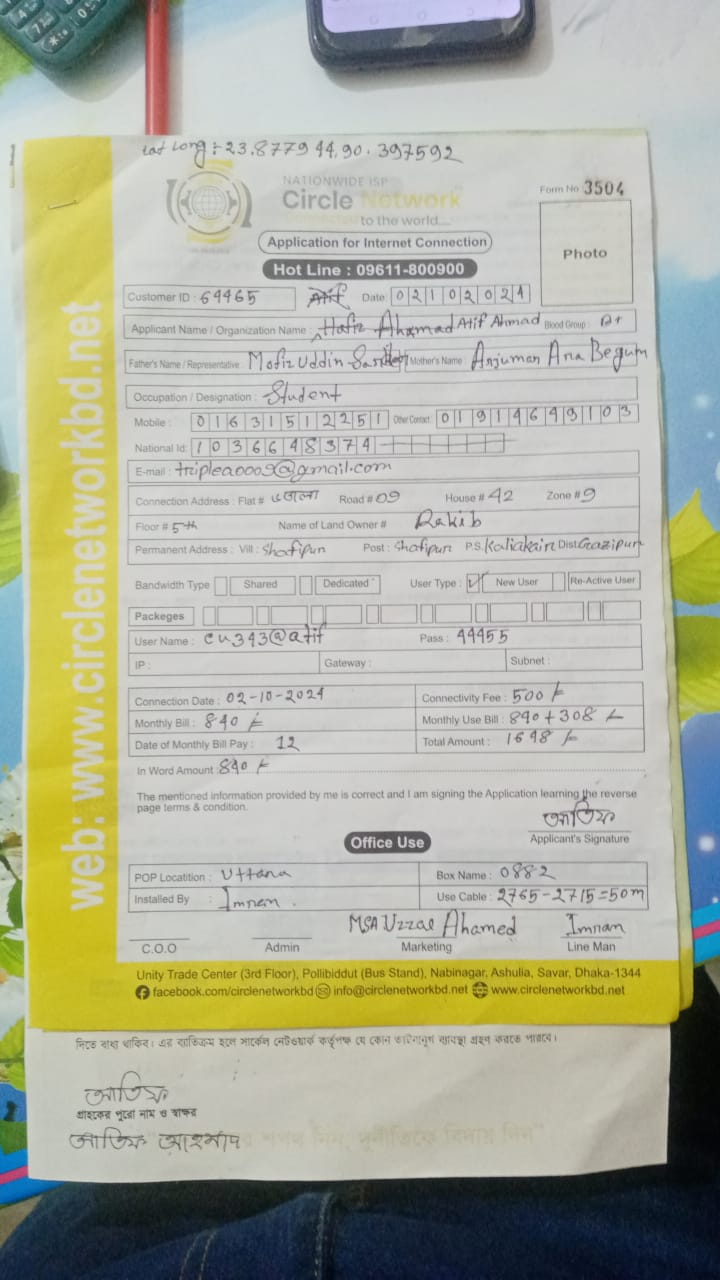 Lat Long :- 23.877944,90.397592
NATIONWIDE ISP
Circle Network
Connected to the world....
Form No 3504
Application for Internet Connection
Photo
Hot Line : 09611-800900
Customer ID : 64465 Date: 02102024
Applicant Name / Organization Name : Hafiz Ahamad Atif Ahmad Blood Group : B+
Father's Name / Representative : Mofiz Uddin Mother's Name : Anjuman Ana Begum
Occupation / Designation : Student
Mobile : 01631512251 Other Contact 01914649103
National Id: 1036648374
E-mail : triplea0009@gmail.com
Connection Address : Flat # Road # 09 House # 42 Zone # 9
Floor # 5th Name of Land Owner # Rakib
Permanent Address : Vill : Shafipur Post : Shafipur P.S. Kaliakair Dist Gazipur
Bandwidth Type Shared Dedicated User Type : ✓ New User Re-Active User
Packeges
User Name : cu343@atif Pass : 44455
IP : Gateway : Subnet :
Connection Date : 02-10-2024 Connectivity Fee : 500 /-
Monthly Bill : 840 /- Monthly Use Bill : 840+308 /-
Date of Monthly Bill Pay : 12 Total Amount : 1648 /-
In Word Amount 840 /-
The mentioned information provided by me is correct and I am signing the Application learning the reverse
page terms & condition.
আতিফ
Applicant's Signature
Office Use
POP Locatition : Uttara Box Name : 0882
Installed By : Imran. Use Cable : 2765-2715=50m
MSA Uzzal Ahamed Imran
C.O.O Admin Marketing Line Man
Unity Trade Center (3rd Floor), Pollibiddut (Bus Stand), Nabinagar, Ashulia, Savar, Dhaka-1344
facebook.com/circlenetworkbd info@circlenetworkbd.net www.circlenetworkbd.net
web: www.circlenetworkbd.net
দিতে বাধ্য থাকিব। এর ব্যতিক্রম হলে সার্কেল নেটওয়ার্ক কর্তৃপক্ষ যে কোন আইনানুগ ব্যবস্থা গ্রহণ করতে পারবে।
আতিফ
গ্রাহকের পুরো নাম ও স্বাক্ষর
আতিফ আহমাদ